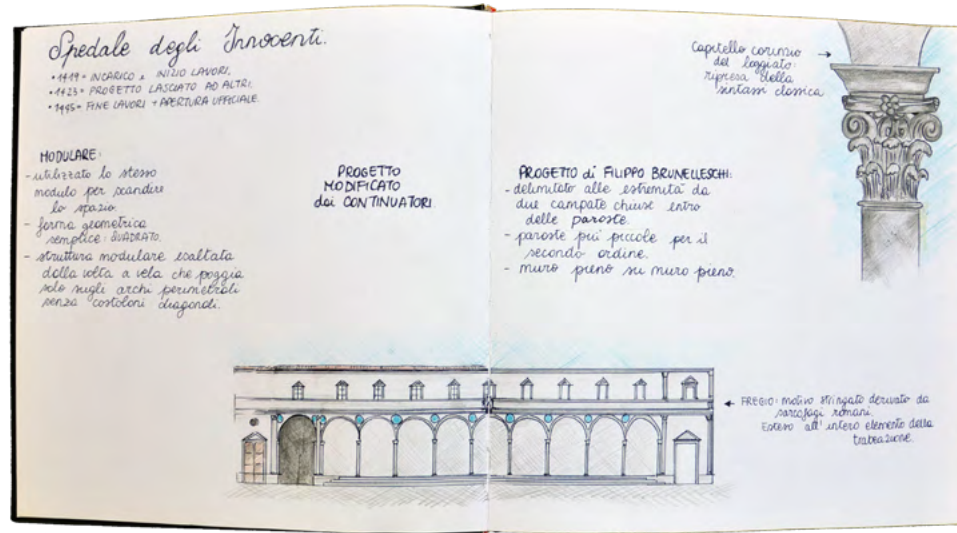 Spedale degli Innocenti.
• 1419 = INCARICO e INIZIO LAVORI.
• 1423 = PROGETTO LASCIATO AD ALTRI.
• 1445 = FINE LAVORI + APERTURA UFFICIALE.
MODULARE:
- utilizzato lo stesso
modulo per scandire
lo spazio.
- forma geometrica
semplice: QUADRATO.
- struttura modulare esaltata
dalla volta a vela che poggia
solo sugli archi perimetrali
senza costoloni diagonali.
PROGETTO
MODIFICATO
dai CONTINUATORI
PROGETTO di FILIPPO BRUNELLESCHI:
- delimitato alle estremità da
due campate chiuse entro
delle paraste.
- paraste più piccole per il
secondo ordine.
- muro pieno su muro pieno.
Capitello corinzio →
del loggiato:
ripresa della
sintassi classica
← FREGIO: motivo strigato derivato da
sarcofagi romani.
Esteso all'intero elemento della
trabeazione.